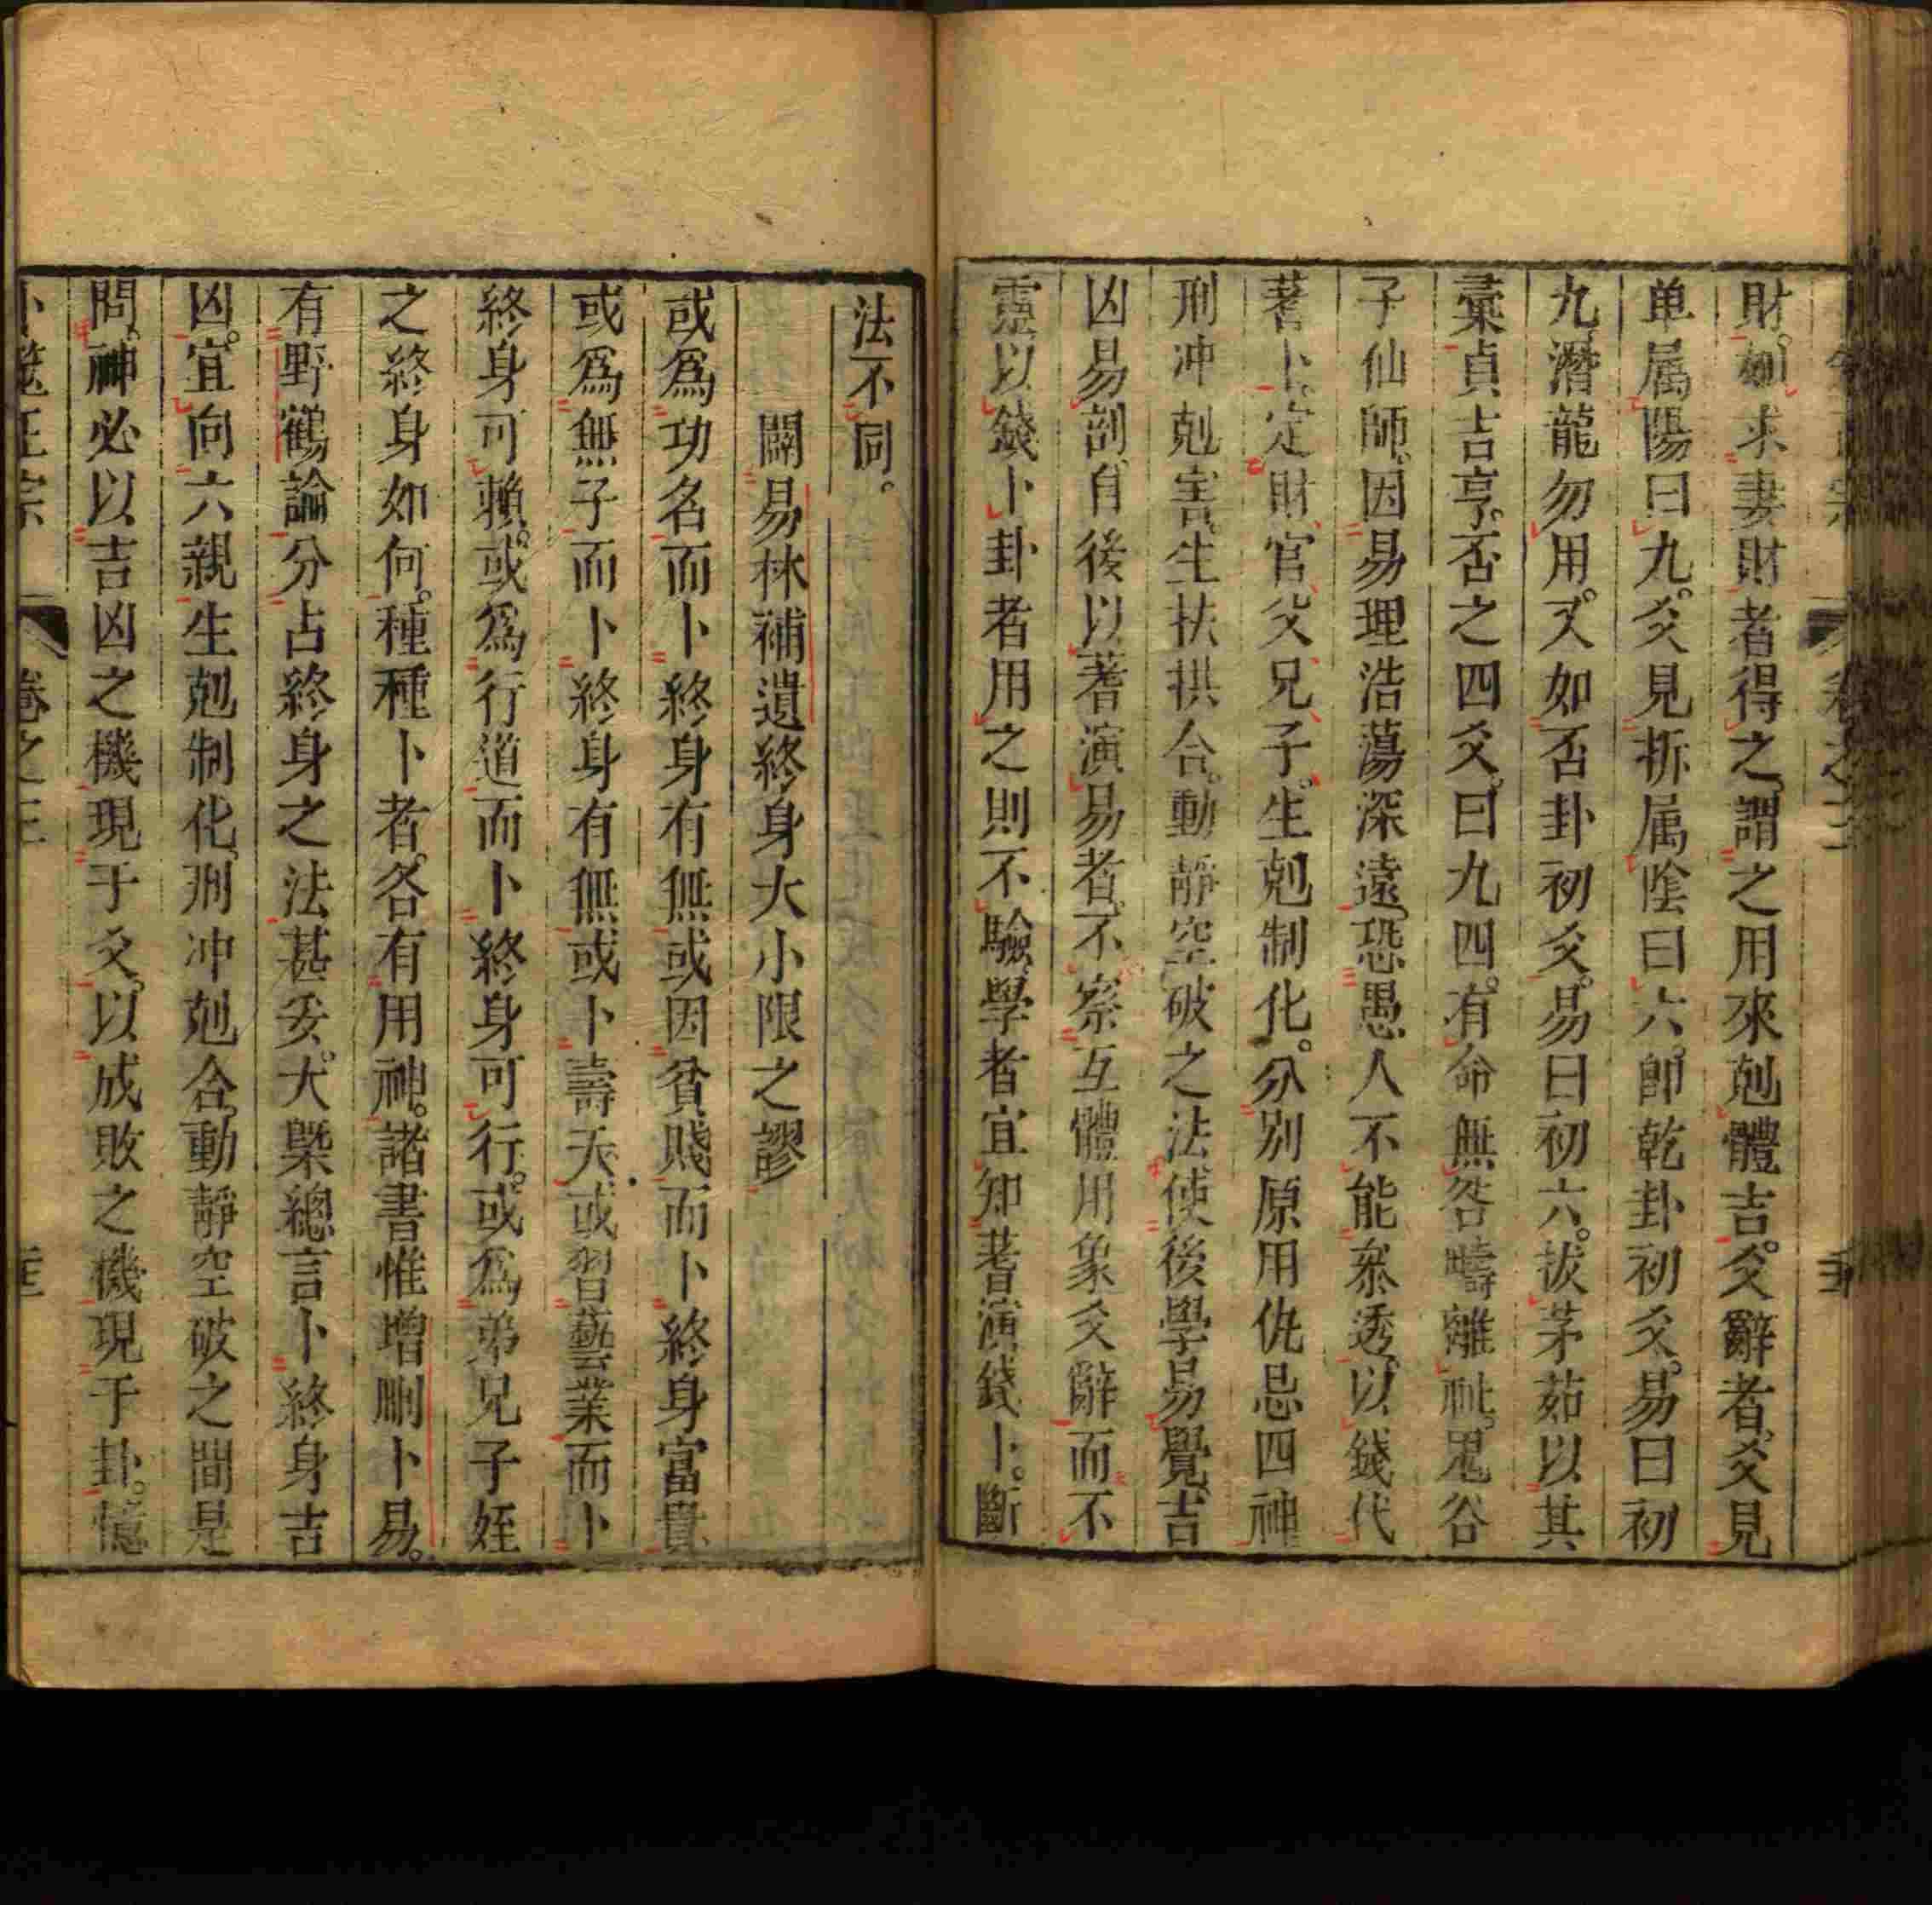 財。如求妻財者得之、謂之用來尅體吉。爻辭者、爻見
单属陽曰九。爻見拆属陰曰六。卽乾卦初爻。易曰初
九、潛龍勿用。又如否卦初爻。易曰初六。拔茅茹以其
彙貞吉亨。否之四爻。曰九四。有命無咎疇離祉。鬼谷
子仙師。因易理浩蕩深遠、恐愚人不能叅透、以錢代
蓍卜。定財、官、父、兄、子。生尅制化。分別原用仇忌四神
刑冲尅害。生扶拱合。動靜空破之法、使後學易覺。吉
凶易剖。自後以蓍演易者。不察互體用象爻辭而不
靈以錢卜卦者用之則不驗、學者宜知蓍演錢卜。斷
法不同。
闢易林補遺終身大小限之謬
或爲功名而卜終身有無或因貧賤而卜終身富貴
或爲無子而卜終身有無或卜壽夭、或習藝業而卜
終身可賴。或爲行道而卜終身可行。或爲弟兄子姪
之終身如何。種種卜者。各有用神。諸書惟增刪卜易。
有野鶴論分占終身之法甚妥。大槩總言卜終身吉
凶。宜向六親生尅制化。刑冲尅合。動靜空破之間是
問。神必以吉凶之機現于爻。以成敗之機現于卦。憶
卜筮正宗 卷之三